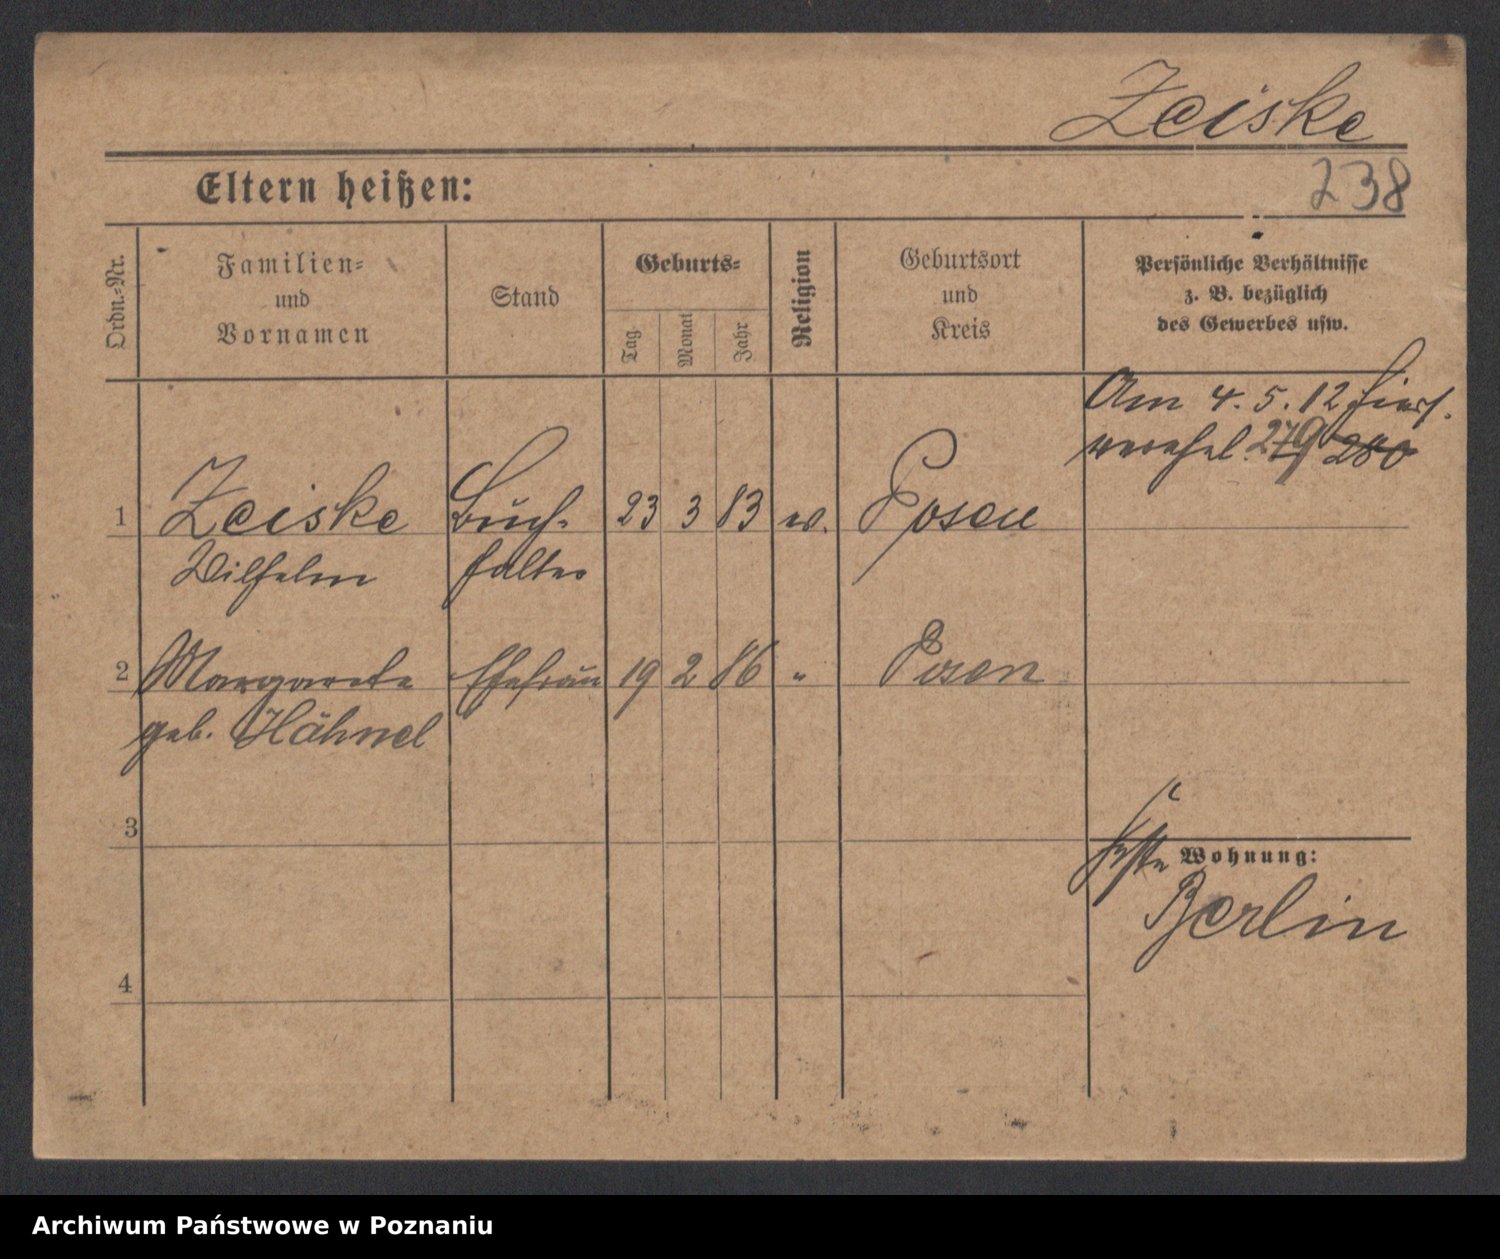 Zeiske
Eltern heißen:
238
Ordn.-Nr.
Familien-
und
Vornamen
Stand
Geburts-
Tag
Monat
Jahr
Religion
Geburtsort
und
Kreis
Persönliche Verhältnisse
z. B. bezüglich
des Gewerbes usw.
Am 4. 5. 12 hiers.
verehel. 279 280
1 Zeiske Buch- 23 3 83 ev. Posen
Wilhelm halter
2 Margarete Ehefrau 19 2 86 " Posen
geb. Hähnel
3
Wohnung:
Berlin
4
Archiwum Państwowe w Poznaniu